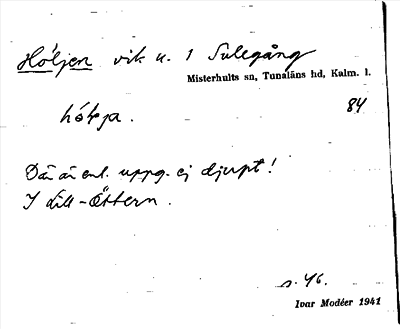 Höljen vik u. 1 Sulegång
Misterhults sn, Tunaläns hd, Kalm. l.
84
Där är enl. uppg. ej djupt!
I Lill-Öttern.
s. 46.
Ivar Modéer 1941